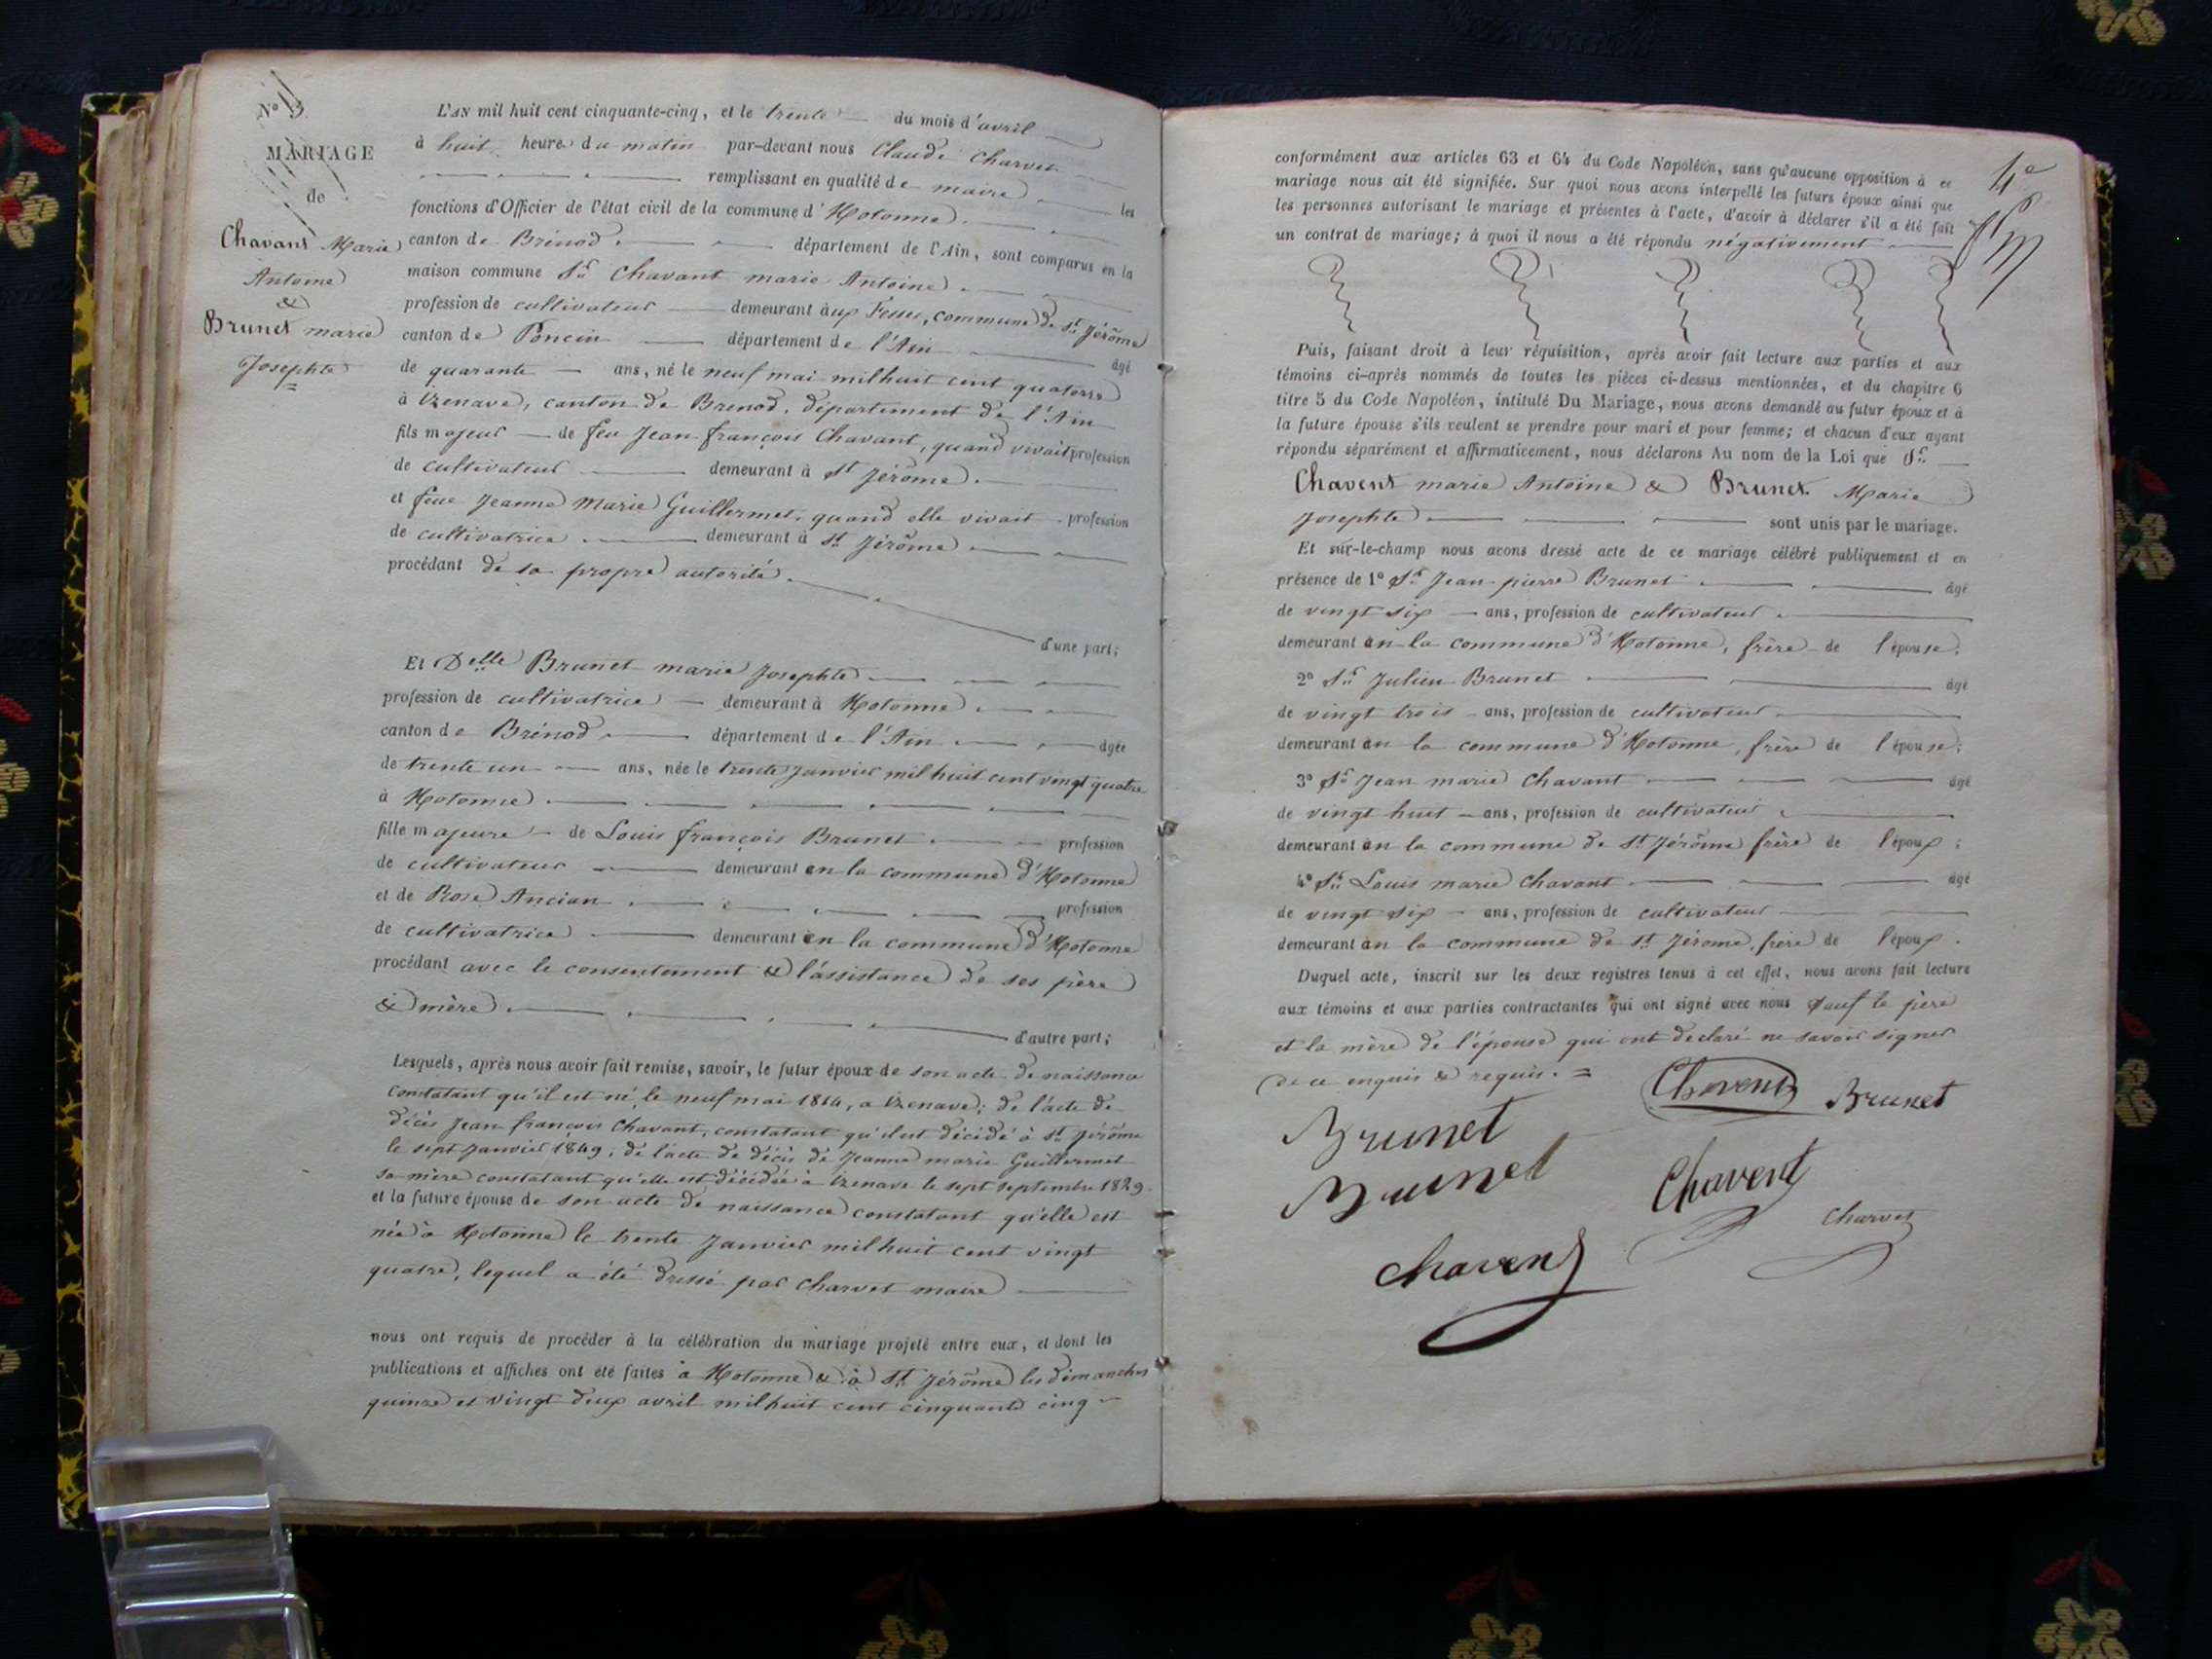 N° 3
MARIAGE
de
Chavant Marie
Antoine
&
Brunet marie
Josephte
L'AN mil huit cent cinquante-cinq, et le trente du mois d'avril
à huit heures du matin par-devant nous Claude Charvet
remplissant en qualité de maire les
fonctions d'Officier de l'état civil de la commune d'Hotonne
canton de Brénod département de l'Ain, sont comparus en la
maison commune Sr Chavant marie Antoine
profession de cultivateur demeurant aux Fesses, commune de St Jérôme
canton de Poncin département de l'Ain âgé
de quarante ans, né le neuf mai mil huit cent quatorze
à Izenave, canton de Brenod, département de l'Ain
fils majeur de feu Jean françois Chavant, quand vivait profession
de cultivateur demeurant à St Jérôme
et feue Jeanne Marie Guillermet, quand elle vivait profession
de cultivatrice demeurant à St Jérôme
procédant de sa propre autorité
d'une part;
Et Delle Brunet marie Josephte
profession de cultivatrice demeurant à Hotonne
canton de Brénod département de l'Ain âgée
de trente un ans, née le trente Janvier mil huit cent vingt quatre
à Hotonne
fille majeure de Louis françois Brunet profession
de cultivateur demeurant en la commune d'Hotonne
et de Rose Ancian profession
de cultivatrice demeurant en la commune d'Hotonne
procédant avec le consentement & l'assistance de ses père
& mère
d'autre part;
Lesquels, après nous avoir fait remise, savoir, le futur époux de son acte de naissance
constatant qu'il est né le neuf mai 1814, a Izenave; de l'acte de
décès Jean françois Chavant, constatant qu'il est décédé à St Jérôme
le sept Janvier 1849; de l'acte de décès de Jeanne marie Guillermet
sa mère constatant qu'elle est décédée à Izenave le sept septembre 1829.
et la future épouse de son acte de naissance constatant qu'elle est
née à Hotonne le trente Janvier mil huit cent vingt
quatre, lequel a été dressé par Charvet maire
nous ont requis de procéder à la célébration du mariage projeté entre eux, et dont les
publications et affiches ont été faites à Hotonne & à St Jérôme les dimanches
quinze et vingt deux avril mil huit cent cinquante cinq
conformément aux articles 63 et 64 du Code Napoléon, sans qu'aucune opposition à ce
mariage nous ait été signifiée. Sur quoi nous avons interpellé les futurs époux ainsi que
les personnes autorisant le mariage et présentes à l'acte, d'avoir à déclarer s'il a été fait
un contrat de mariage; à quoi il nous a été répondu négativement
Puis, faisant droit à leur réquisition, après avoir fait lecture aux parties et aux
témoins ci-après nommés de toutes les pièces ci-dessus mentionnées, et du chapitre 6
titre 5 du Code Napoléon, intitulé Du Mariage, nous avons demandé au futur époux et à
la future épouse s'ils veulent se prendre pour mari et pour femme; et chacun d'eux ayant
répondu séparément et affirmativement, nous déclarons Au nom de la Loi que Sr
Chavent marie Antoine & Brunet Marie
Josephte sont unis par le mariage.
Et sur-le-champ nous avons dressé acte de ce mariage célébré publiquement et en
présence de 1° Sr Jean-pierre Brunet âgé
de vingt six ans, profession de cultivateur
demeurant en la commune d'Hotonne, frère de l'épouse;
2° Sr Julien Brunet âgé
de vingt trois ans, profession de cultivateur
demeurant en la commune d'Hotonne, frère de l'épouse;
3° Sr Jean marie Chavant âgé
de vingt huit ans, profession de cultivateur
demeurant en la commune de St Jérôme frère de l'époux;
4° Sr Louis marie Chavant âgé
de vingt six ans, profession de cultivateur
demeurant en la commune de St Jérome, frère de l'époux.
Duquel acte, inscrit sur les deux registres tenus à cet effet, nous avons fait lecture
aux témoins et aux parties contractantes qui ont signé avec nous sauf le père
et la mère de l'épouse qui ont declaré ne savoir signer
de ce enquis & requis. =
Chavent Brunet
Brunet
Brunet
Chavent
Charvet
Chavent